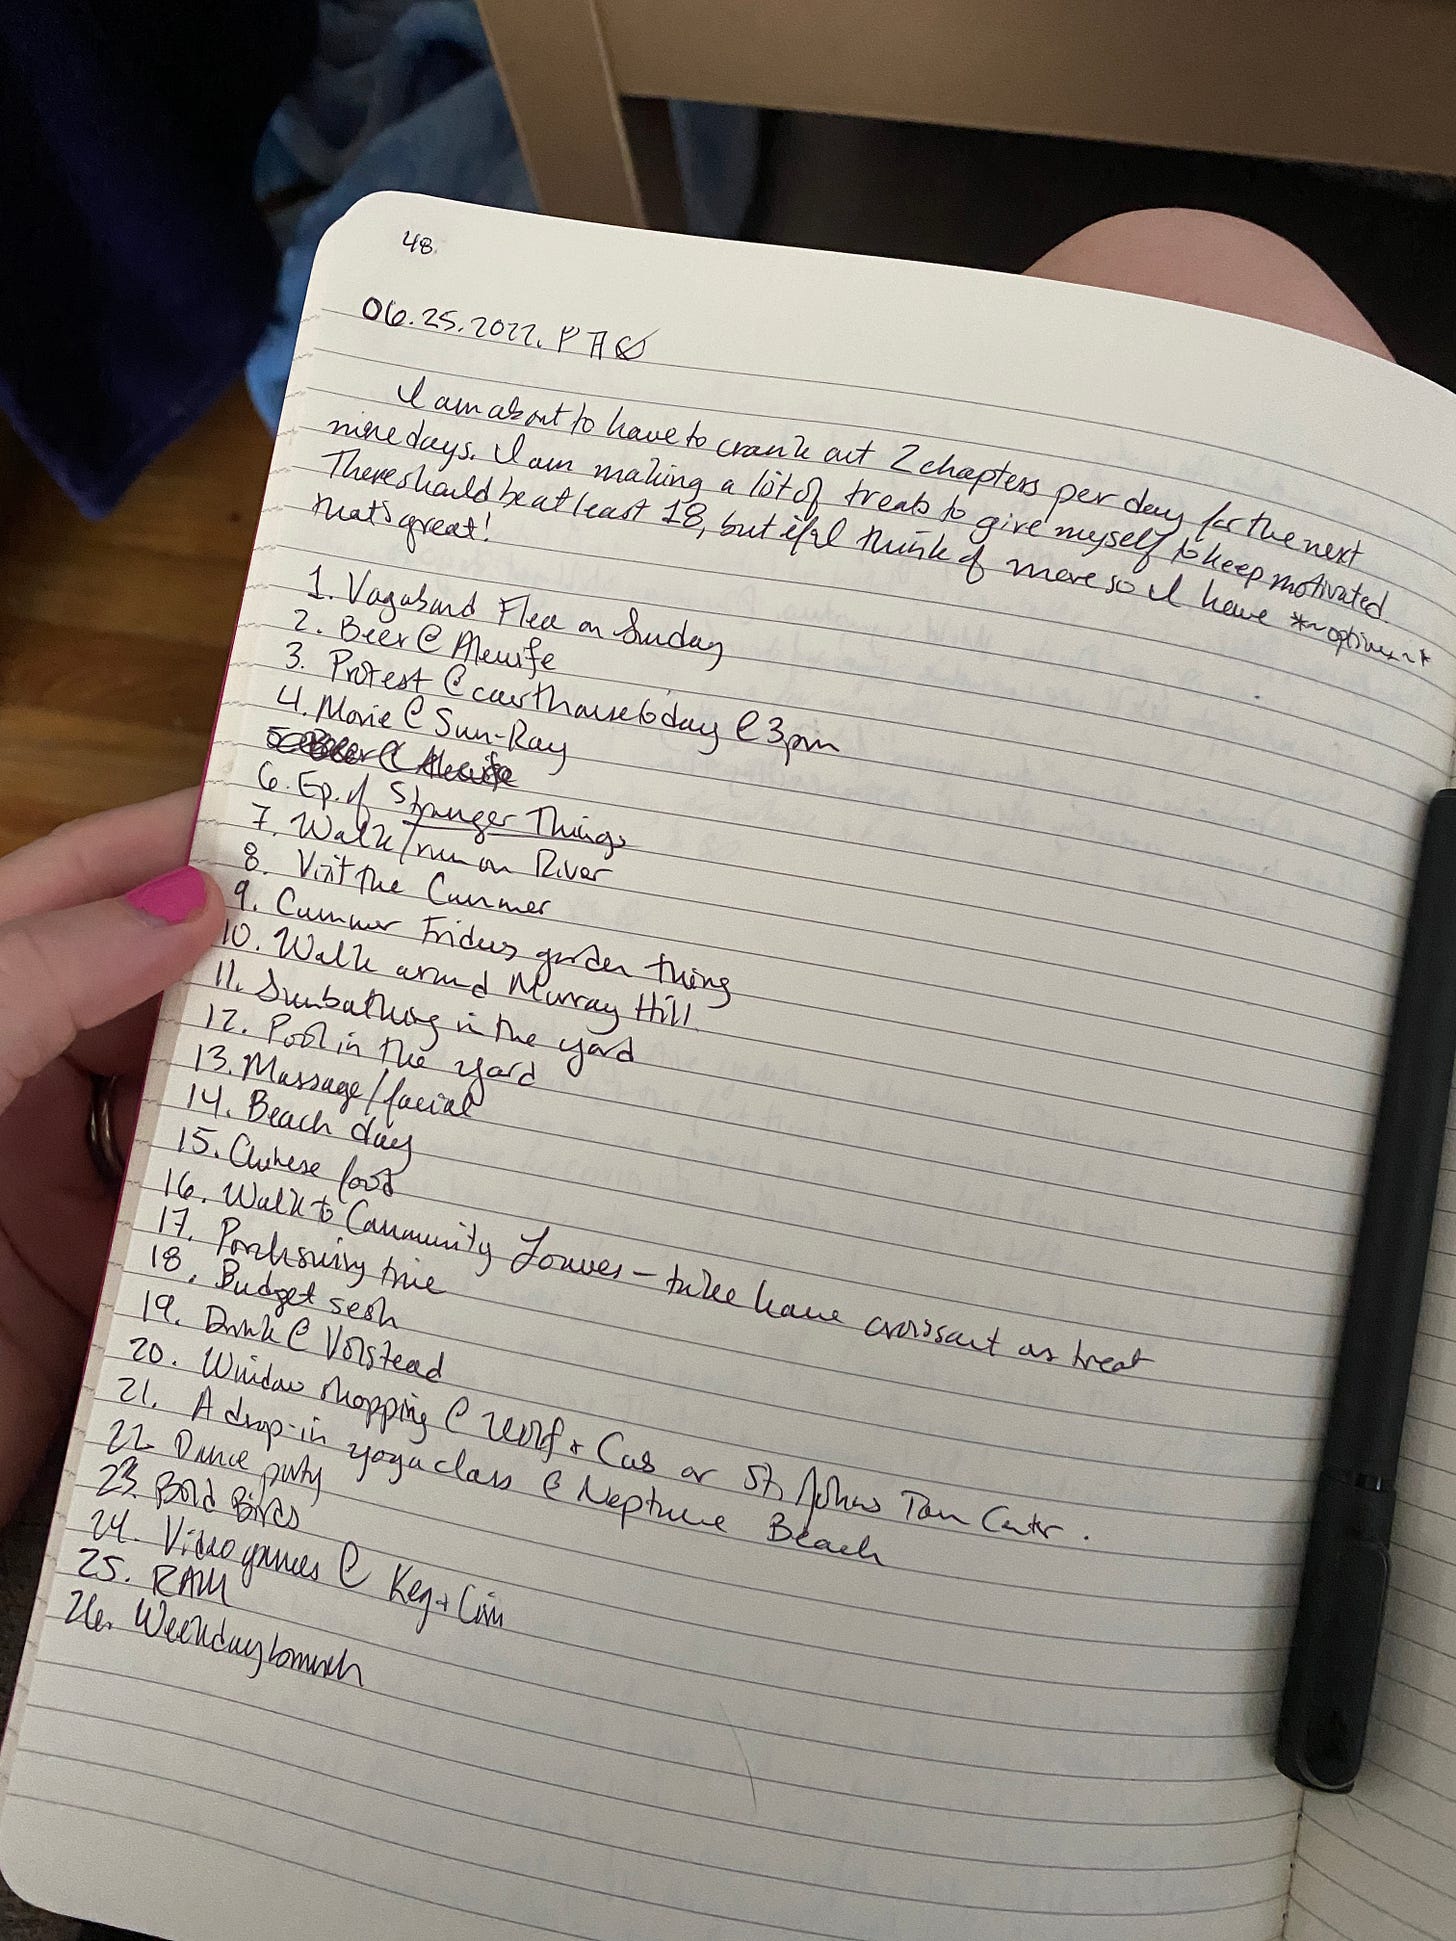 48.
06.25.2022. P
I am about to have to crank out 2 chapters per day for the next
nine days. I am making a lot of treats to give myself to keep motivated.
There should be at least 18, but if I think of more so I have *~options~*
that's great!
1. Vagabond Flea on Sunday
2. Beer @ Alewife
3. Protest @ courthouse today @ 3pm
4. Movie @ Sun-Ray
5. Beer @ Alewife
6. Ep. of Stranger Things
7. Walk/run on River
8. Visit the Cummer
9. Cummer Fridays garden thing
10. Walk around Murray Hill
11. Sunbathing in the yard
12. Pool in the yard
13. Massage/facial
14. Beach day
15. Chinese food
16. Walk to Community Loaves – take home croissant as treat
17. Porch swing time
18. Budget sesh
19. Drink @ Volstead
20. Window shopping @ Wolf + Cub or St. Johns Town Center.
21. A drop-in yoga class @ Neptune Beach
22 Dance party
23. Bold Birds
24. Video games @ Keg + Coin
25. RAM
26. Weekday brunch